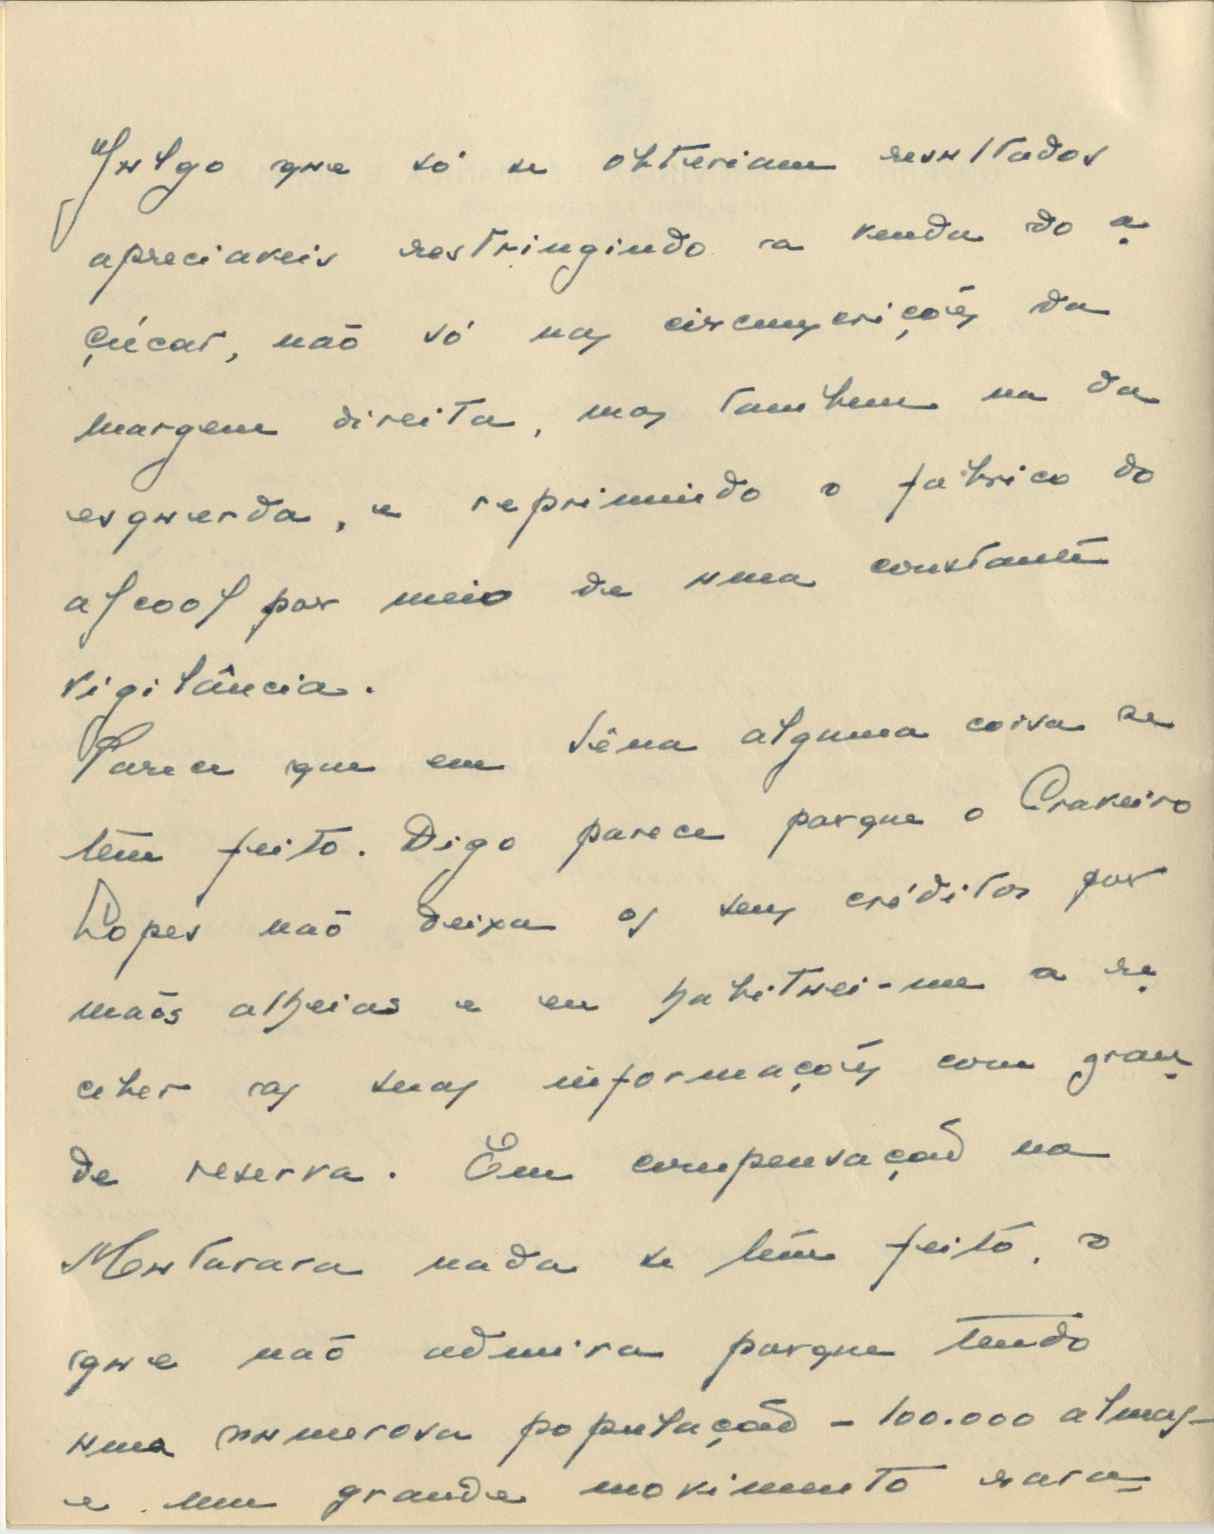 Julgo que só se obteriam resultados
apreciaveis restringindo a venda do a-
çúcar, não só nas circunscrições da
margem direita, mas tambem na da
esquerda, e reprimindo o fabrico do
alcool por meio de uma constante
vigilância.
Parece que em Sêna alguma coisa se
têm feito. Digo parece porque o Craveiro
Lopes não deixa os seus créditos por
mãos alheias e eu habituei-me a re-
ceber as suas informações com gran-
de reserva. Em compensação na
Mutarara nada se têm feito, o
que não admira porque tendo
uma numerosa população - 100.000 almas -
e um grande movimento rara-